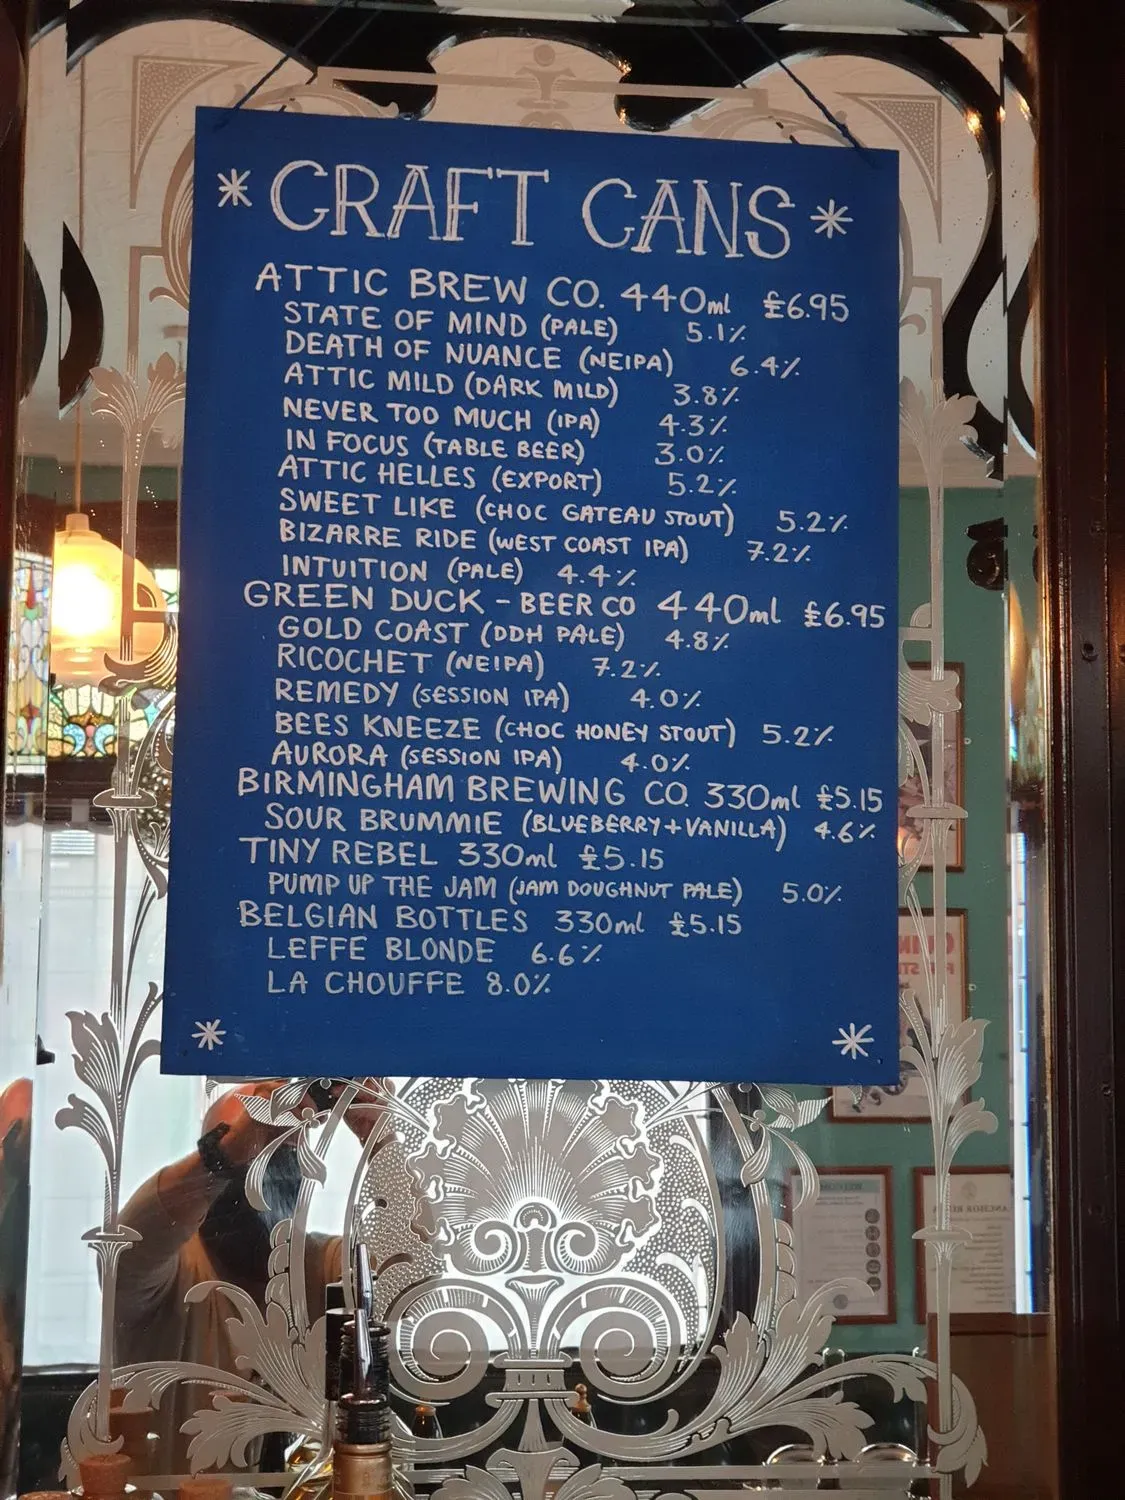 * CRAFT CANS *
ATTIC BREW CO. 440ml £6.95
STATE OF MIND (PALE) 5.1%
DEATH OF NUANCE (NEIPA) 6.4%
ATTIC MILD (DARK MILD) 3.8%
NEVER TOO MUCH (IPA) 4.3%
IN FOCUS (TABLE BEER) 3.0%
ATTIC HELLES (EXPORT) 5.2%
SWEET LIKE (CHOC GATEAU STOUT) 5.2%
BIZARRE RIDE (WEST COAST IPA) 7.2%
INTUITION (PALE) 4.4%
GREEN DUCK - BEER CO 440ml £6.95
GOLD COAST (DDH PALE) 4.8%
RICOCHET (NEIPA) 7.2%
REMEDY (SESSION IPA) 4.0%
BEES KNEEZE (CHOC HONEY STOUT) 5.2%
AURORA (SESSION IPA) 4.0%
BIRMINGHAM BREWING CO. 330ml £5.15
SOUR BRUMMIE (BLUEBERRY+VANILLA) 4.6%
TINY REBEL 330ml £5.15
PUMP UP THE JAM (JAM DOUGHNUT PALE) 5.0%
BELGIAN BOTTLES 330ml £5.15
LEFFE BLONDE 6.6%
LA CHOUFFE 8.0%